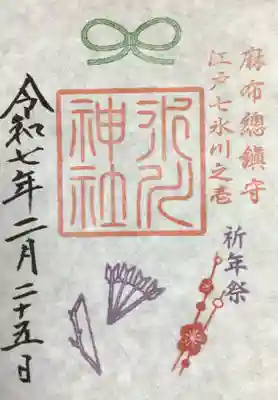 麻布總鎮守
江戸七氷川之壱
祈年祭
氷川
神社
令和七年二月二十五日